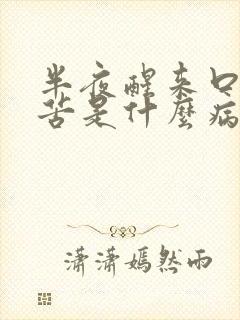 半夜醒来口
苦是什麼病
潇潇嫣然雨